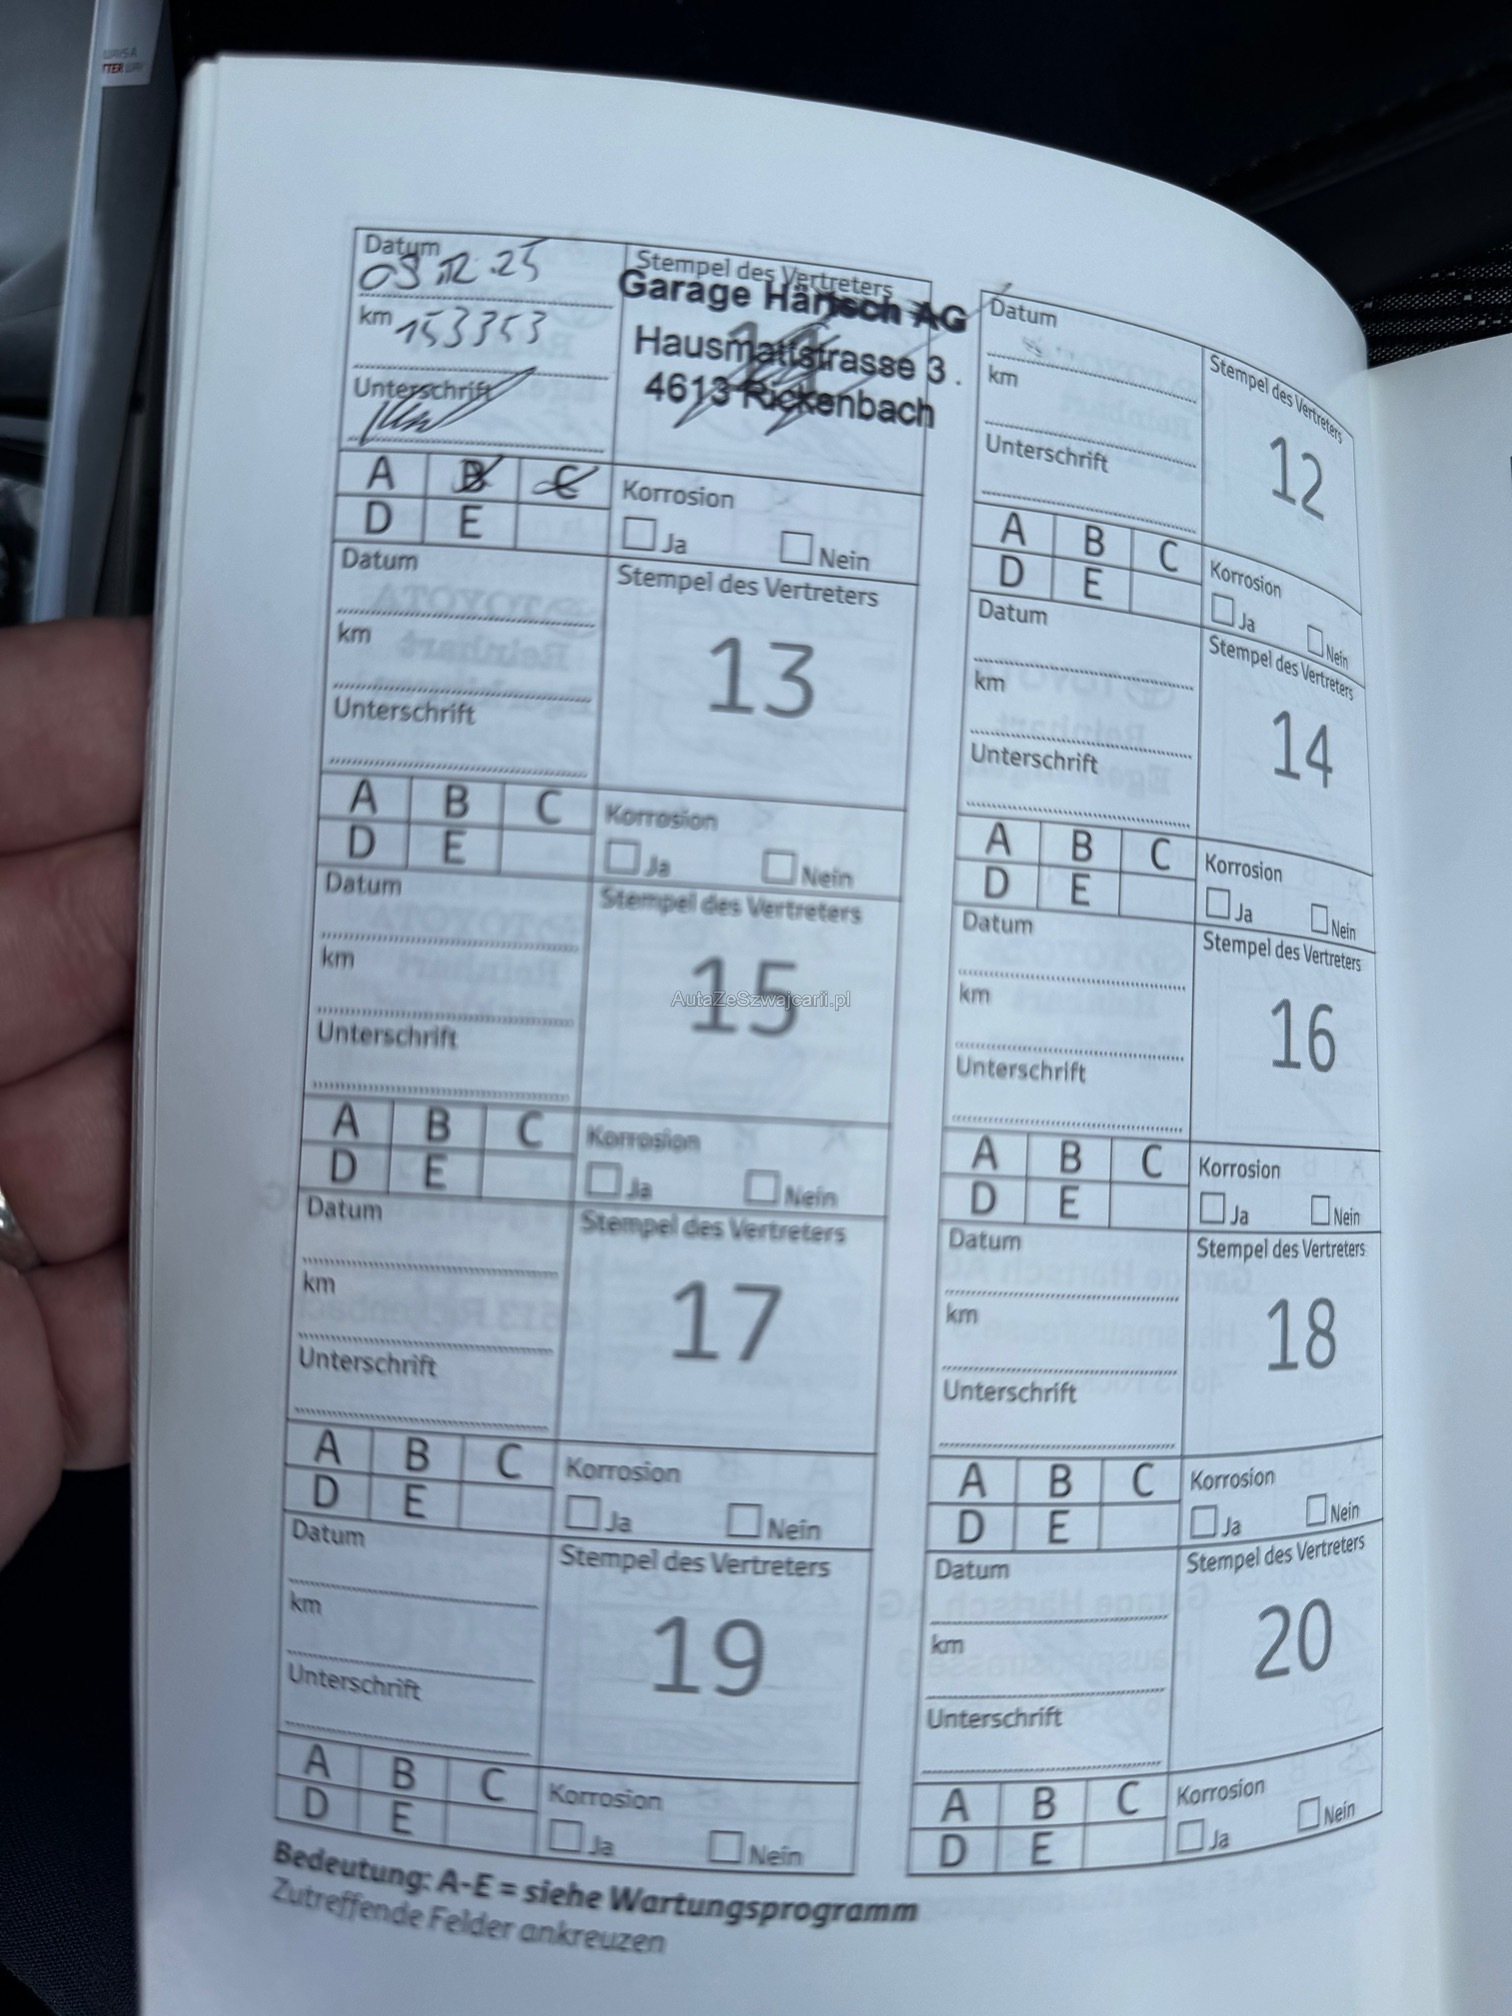 WAYS A
TTER WAY
Datum
09.12.25
km 153353
Unterschrift
Stempel des Vertreters
Garage Härtsch AG
Hausmattstrasse 3
4613 Rickenbach
11
A B C
D E
Korrosion
Ja Nein
Datum
km
Unterschrift
Stempel des Vertreters
12
A B C
D E
Korrosion
Ja Nein
Datum
km
Unterschrift
Stempel des Vertreters
13
A B C
D E
Korrosion
Ja Nein
Datum
km
Unterschrift
Stempel des Vertreters
14
A B C
D E
Korrosion
Ja Nein
Datum
km
Unterschrift
Stempel des Vertreters
15
AutaZeSzwajcarii.pl
A B C
D E
Korrosion
Ja Nein
Datum
km
Unterschrift
Stempel des Vertreters
16
A B C
D E
Korrosion
Ja Nein
Datum
km
Unterschrift
Stempel des Vertreters
17
A B C
D E
Korrosion
Ja Nein
Datum
km
Unterschrift
Stempel des Vertreters
18
A B C
D E
Korrosion
Ja Nein
Datum
km
Unterschrift
Stempel des Vertreters
19
A B C
D E
Korrosion
Ja Nein
Datum
km
Unterschrift
Stempel des Vertreters
20
A B C
D E
Korrosion
Ja Nein
Bedeutung: A-E = siehe Wartungsprogramm
Zutreffende Felder ankreuzen